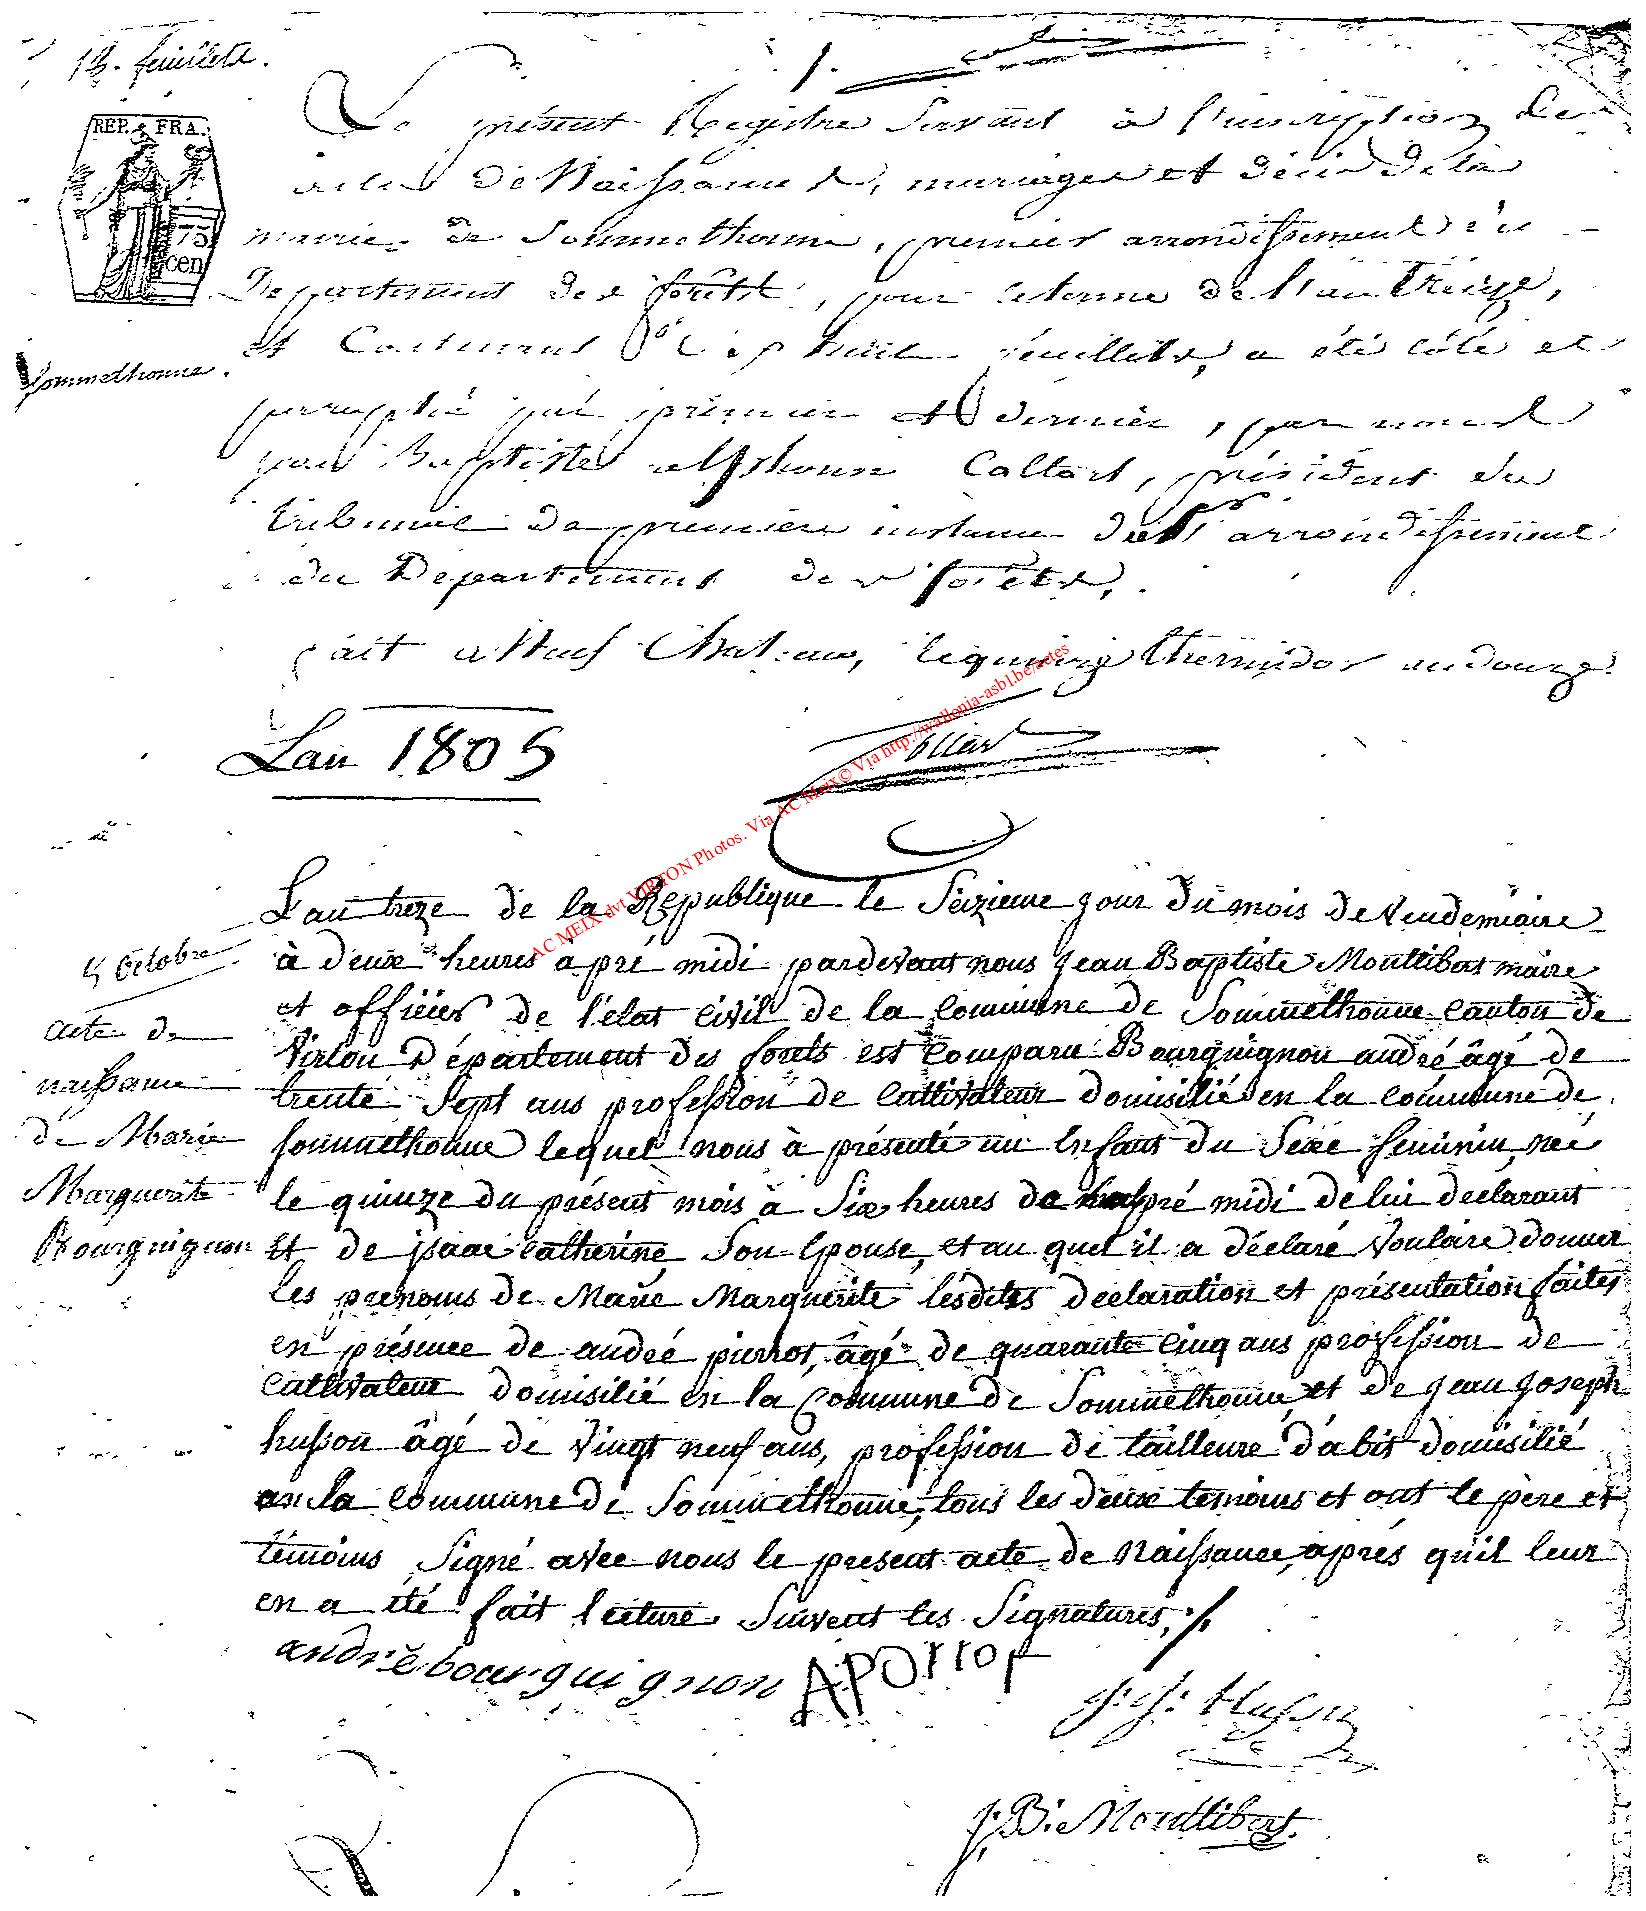 18. feuillets.
1.
REP. FRA.
75
cen
Sommethonne.
Le présent Registre Servant à l'inscription des
actes de Naissances, mariages et décès de la
mairie de Sommethonne, premier arrondissement du
Département des forêts, pour le terme de l'an Treize,
et Contenant dix huit feuillets, a été côté et
paraphé par premier et dernier, par nous
jean Baptiste alphonse Collard, président du
tribunal de première instance du 1er arrondissement
du Departement des forêts.
fait a Neuf Chateau, le quinze thermidor an douze.
Lan 1805
Collard
AC MEIX dvt VIRTON Photos. Via AC Meix© Via http://wallonia-asbl.be/actes
5 Octobre
acte de
naissance
de Marie
Marguerite
Bourguignon
L'an treze de la Republique le Seizieme jour du mois de Vendemiaire
à deux heures apré midi pardevant nous jean Baptiste Montlibert maire
et officier de l'état civil de la commune de Sommethonne canton de
Virton Département des forêts est comparu Bourguignon andré âgé de
trente Sept ans profession de Cultivateur domisilié en la commune de
Sommethonne lequel nous à présenté un Enfant du Sexe feminin, né
le quinze du présent mois à Six heures de apré midi de lui declarant
Et de isaac catherine Son Epouse, et au quel il a déclaré Vouloire donner
Les prenoms de Marie Marguerite lesdites declaration et présentation faites
en présence de andré pierrot, âgé de quarante Cinq ans profession de
Cultivateur domisilié en la Commune de Sommethonne et de jean joseph
husson âgé de Vingt neuf ans, profession de tailleure d'abit domisilié
en la commune de Sommethonne, tous les deux temoins et ont le père et
témoins Signé avec nous le present acte de Naissance, aprés quil leur
en a été fait lecture Suivent les Signatures, ./.
andrébourguignon APOrrot
j. j. Husson
J. B. Montlibert.